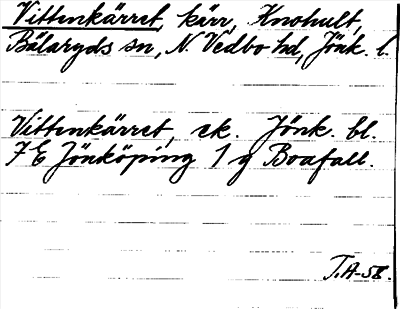 Vittenkärret, kärr, Knohult,
Bälaryds sn, N. Vedbo hd, Jönk. l.
Vittenkärret, ek. Jönk. bl.
7 E Jönköping 1 g Boafall.
T.A-58.